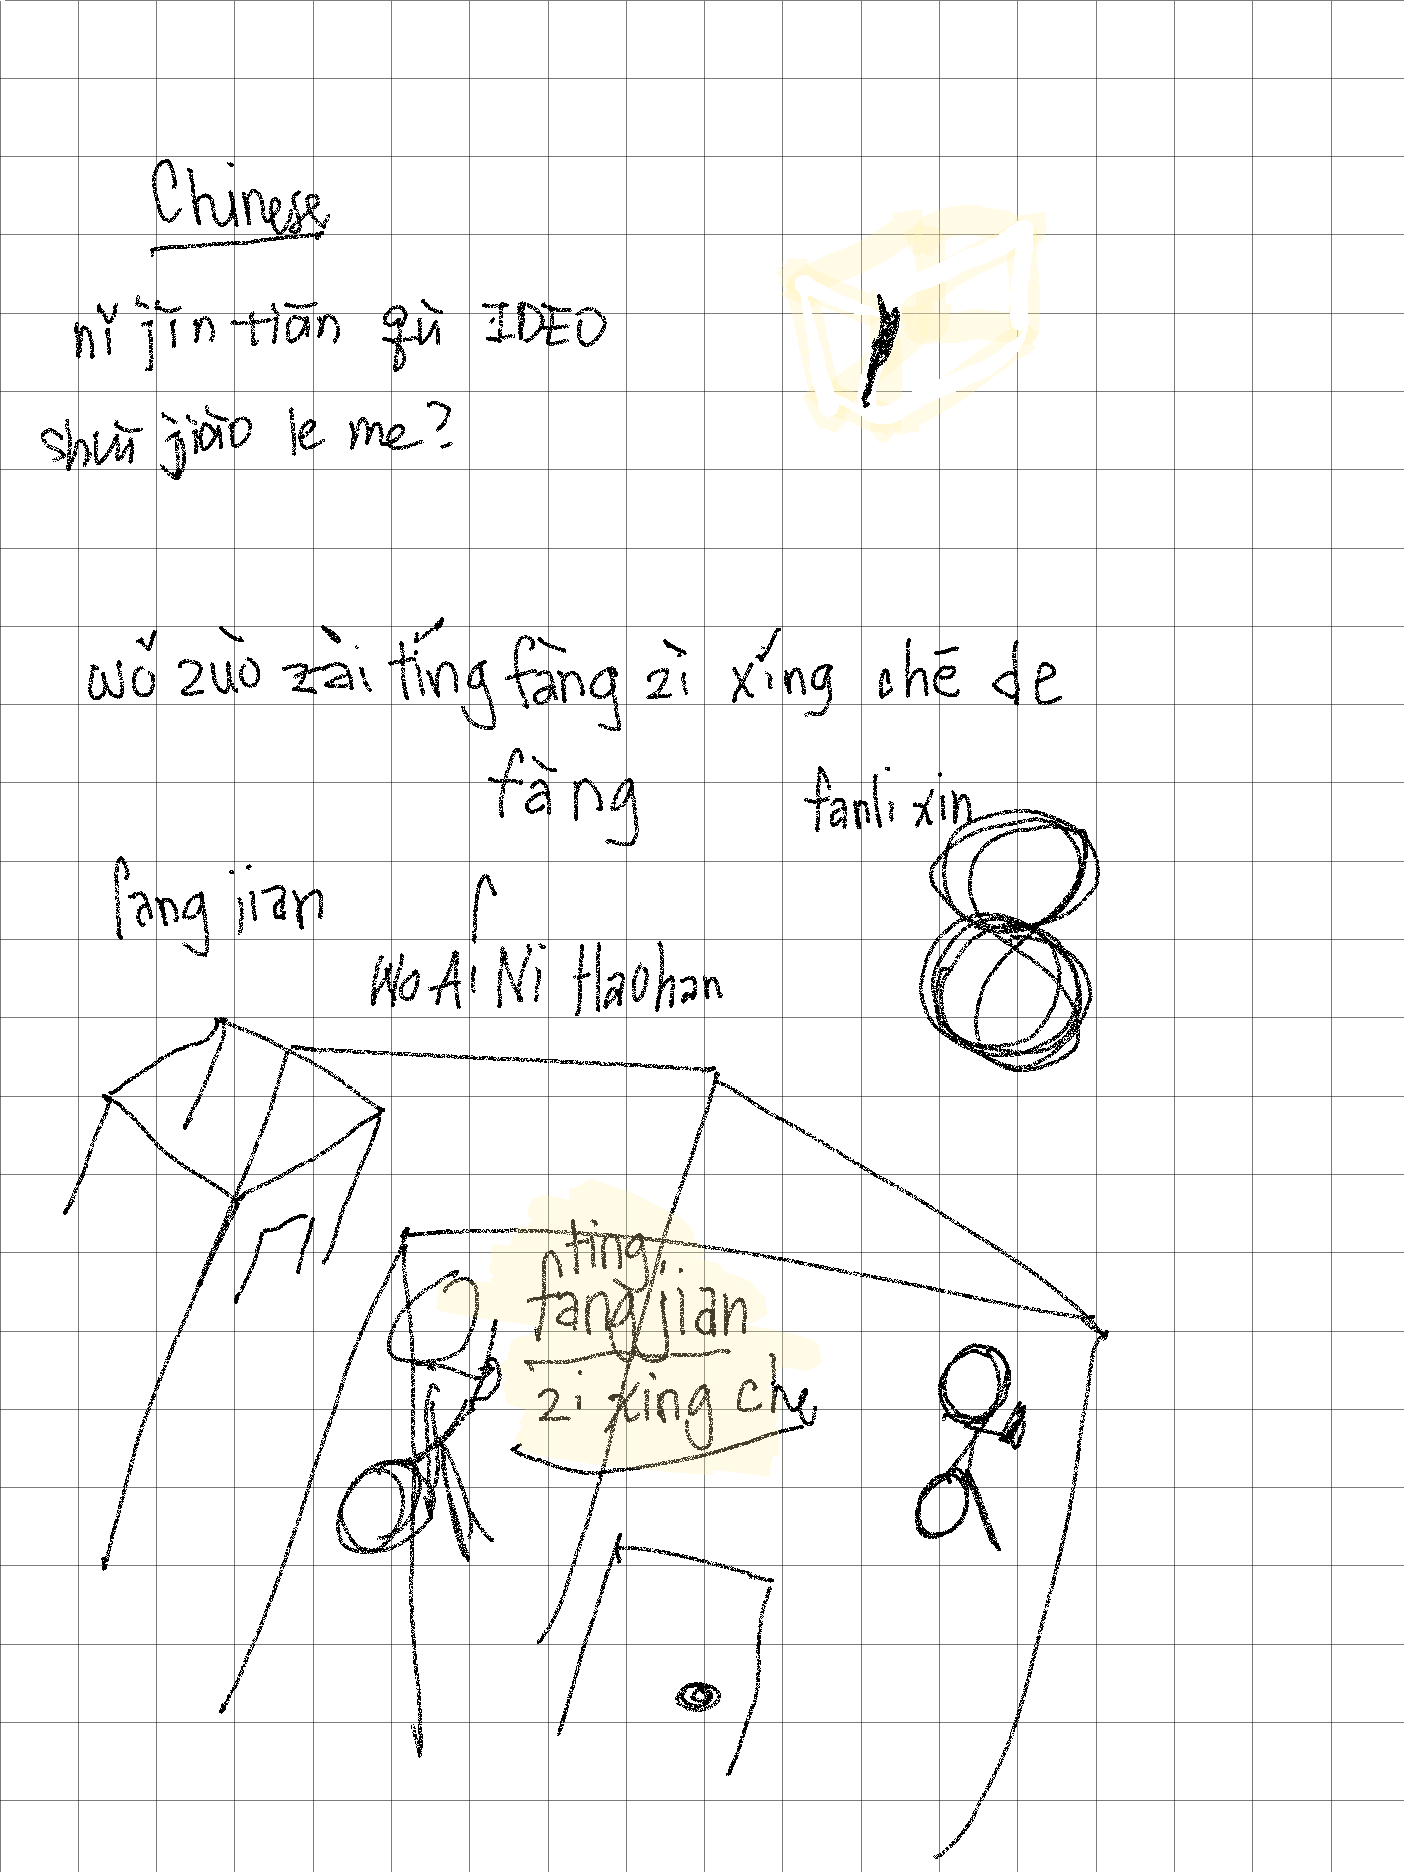 Chinese
nǐ jīn tiān qù IDEO
shuì jiào le me?
wǒ zuò zài tíng fàng zì xíng chē de
fàng
fanli xin
fang jian
Wo Ai Ni Haohan
ting
fang jian
zi xing che